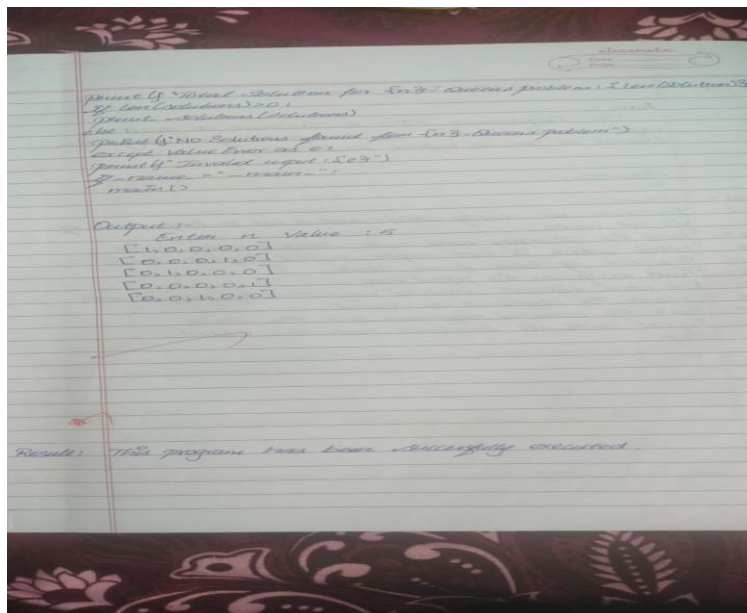 classmate
Date
Page
print(f"Total Solution for {n}-Queens problem: {len(solution)}
If len(solutions)>0:
print_solutions(solutions)
else:
print(f"No Solutions found for {n}-Queens problem")
except Value Error as e:
print(f"Invalid input: {e}")
If_name="_main_":
main()
Output:-
Enter n value : 5
[1,0,0,0,0]
[0,0,0,1,0]
[0,1,0,0,0]
[0,0,0,0,1]
[0,0,1,0,0]
Result: This program has been successfully executed.